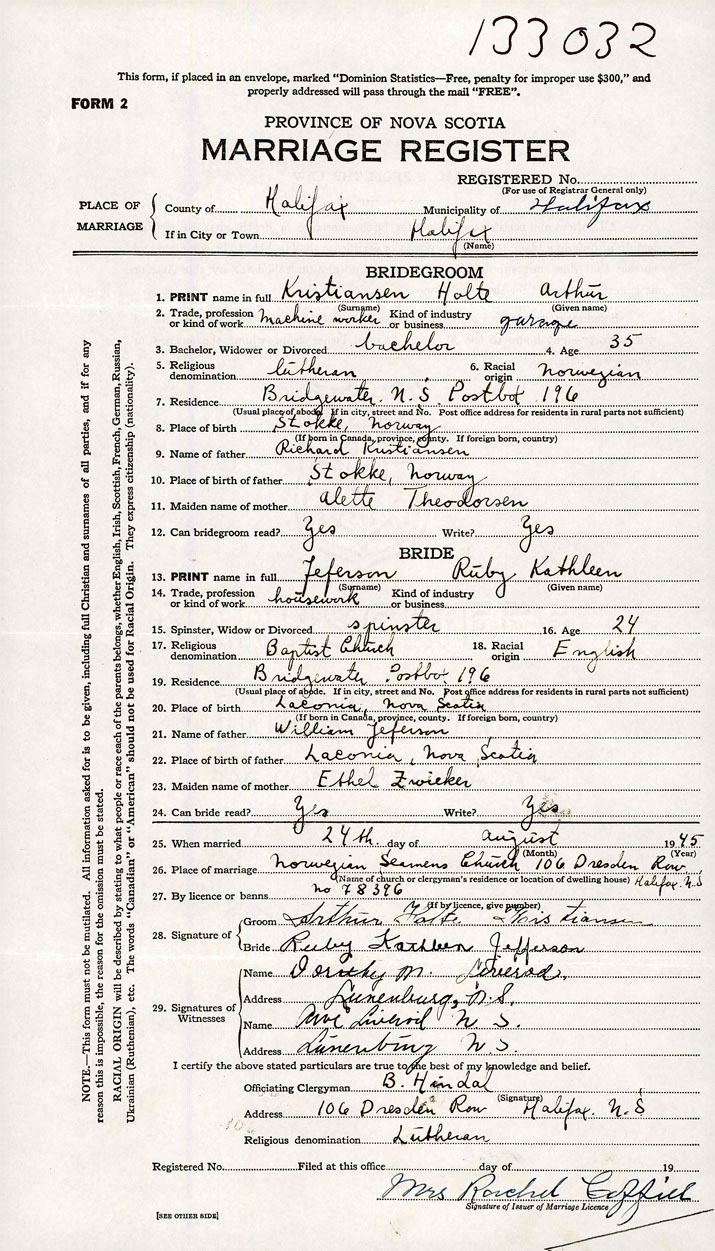 133032
This form, if placed in an envelope, marked “Dominion Statistics—Free, penalty for improper use $300,” and
properly addressed will pass through the mail “FREE”.
FORM 2
PROVINCE OF NOVA SCOTIA
MARRIAGE REGISTER
REGISTERED No.
(For use of Registrar General only)
PLACE OF MARRIAGE
County of Halifax Municipality of Halifax
If in City or Town Halifax
(Name)
BRIDEGROOM
1. PRINT name in full Kristiansen Holte Arthur
(Surname) (Given name)
2. Trade, profession or kind of work Machine worker Kind of industry or business garage
3. Bachelor, Widower or Divorced bachelor 4. Age 35
5. Religious denomination lutheran 6. Racial origin Norwegian
7. Residence Bridgewater. N.S. Postbox 196
(Usual place of abode. If in city, street and No. Post office address for residents in rural parts not sufficient)
8. Place of birth Stokke, Norway
(If born in Canada, province, county. If foreign born, country)
9. Name of father Richard Kristiansen
10. Place of birth of father Stokke, Norway
11. Maiden name of mother Alette Theodorsen
12. Can bridegroom read? Yes Write? Yes
BRIDE
13. PRINT name in full Jeferson Ruby Kathleen
(Surname) (Given name)
14. Trade, profession or kind of work housework Kind of industry or business
15. Spinster, Widow or Divorced spinster 16. Age 24
17. Religious denomination Baptist Church 18. Racial origin English
19. Residence Bridgewater Postbox 196
(Usual place of abode. If in city, street and No. Post office address for residents in rural parts not sufficient)
20. Place of birth Laconia, Nova Scotia
(If born in Canada, province, county. If foreign born, country)
21. Name of father William Jeferson
22. Place of birth of father Laconia, Nova Scotia
23. Maiden name of mother Ethel Zwicker
24. Can bride read? Yes Write? Yes
25. When married 24th. day of August 1945
(Month) (Year)
26. Place of marriage Norwegian Seamens Church 106 Dresden Row
(Name of church or clergyman's residence or location of dwelling house) Halifax. N.S
27. By licence or banns no 78396
(If by licence, give number)
28. Signature of
Groom Arthur Holte Kristiansen
Bride Ruby Kathleen Jefferson
29. Signatures of Witnesses
Name Dorothy M.
Address Lunenburg, N.S.
Name N. S.
Address Lunenburg N. S.
I certify the above stated particulars are true to the best of my knowledge and belief.
Officiating Clergyman B. Hindal
(Signature)
Address 106 Dresden Row Halifax. N.S
Religious denomination Lutheran
Registered No. Filed at this office day of 19
Mrs Rachel
Signature of Issuer of Marriage Licence
[SEE OTHER SIDE]
NOTE.—This form must not be mutilated. All information asked for is to be given, including full Christian and surnames of all parties, and if for any
reason this is impossible, the reason for the omission must be stated.
RACIAL ORIGIN will be described by stating to what people or race each of the parents belongs, whether English, Irish, Scottish, French, German, Russian,
Ukrainian (Ruthenian), etc. The words “Canadian” or “American” should not be used for Racial Origin. They express citizenship (nationality).